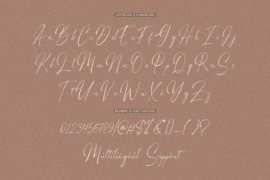 UPPERCASE & LOWERCASE
Aa Bb Cc Dd Ee Ff Gg Hh Ii Jj
Kk Ll Mm Nn Oo Pp Qq Rr Ss
Tt Uu Vv Ww Xx Yy Zz
NUMBERS & PUNCTUATIONS
Multilingual Support